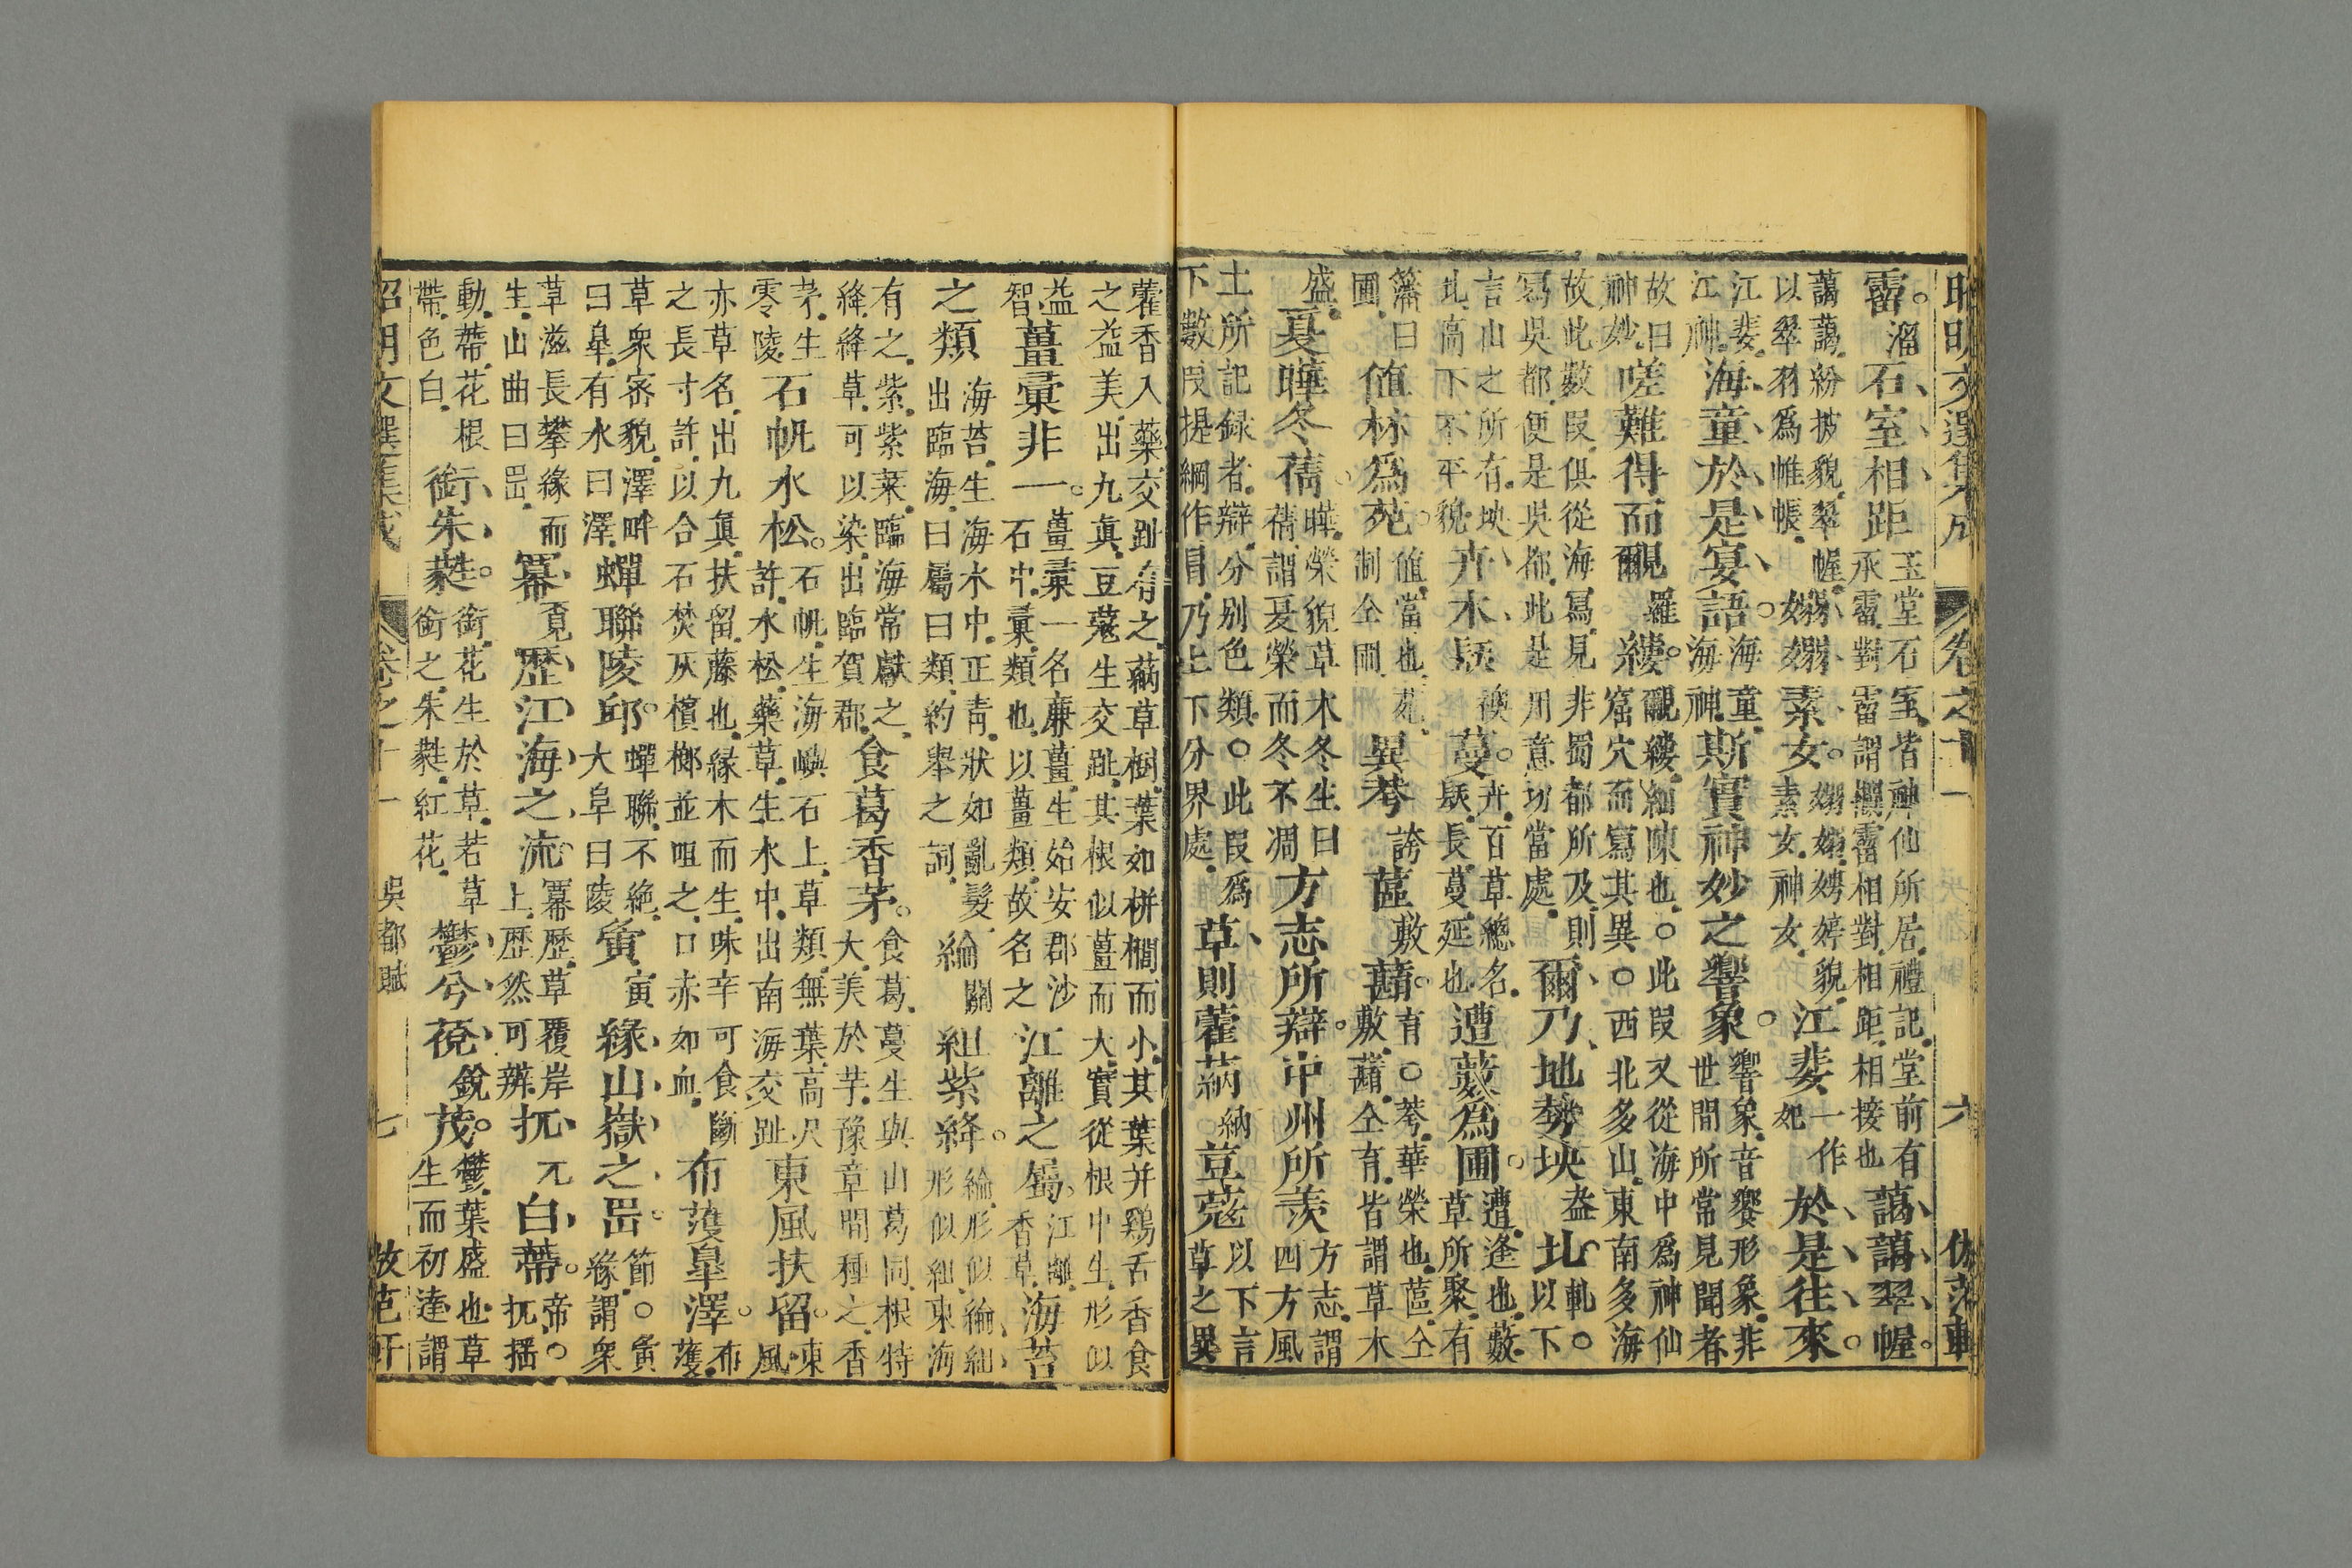 昭明文選集成 卷之十一 六 倣范軒
霤。溜石室相距玉堂石室皆神仙所居禮記堂前有承霤對霤謂檐霤相對相距相接也藹藹翠幄。
藹藹紛披貌翠幄以翠羽爲帷帳嫋嫋素女。嫋嫋娉婷貌素女神女江婓一作妃於是往來。
江婓江神海童於是宴語。海童海神斯實神妙之響象。響象音響形象非世間所常見聞者
故曰神妙嗟難得而覼羅縷。覼縷細陳也○此段又從海中爲神仙窟穴而寫其異○西北多山東南多海
故此數段俱從海寫見非蜀都所及則寫吳都便是吳都此是用意切當處爾乃地勢坱益圠。軋○以下
言山之所有坱圠高下不平貌卉木镺襖蔓。卉百草總名镺長蔓延也遭藪爲圃。遭逢也藪草所聚有
籓曰圃値林爲苑。値當也苑制仝囿異荂誇蓲敷蘛。有○荂華榮也蓲仝敷蘛仝育皆謂草木
盛夏曄冬蒨。曄榮貌草木冬生曰蒨謂夏榮而冬不凋方志所辯。中州所羨方志謂四方風
土所記録者辯分别色類○此段爲下數段提綱作冒乃上下分界處草則藿蒳納荳蔻以下言草之異
藿香入藥交趾有之蒳草樹葉如栟櫚而小其葉并鷄舌香食之益美出九眞豆蔻生交趾其根似薑而大實從根中生形似
益智薑彙非一。薑彙一名廉薑生始安郡沙石中彙類也以薑類故名之江離之屬。江離香草海苔
之類海苔生海水中正靑狀如亂髮出臨海曰屬曰類約舉之詞綸關組紫絳。綸形似綸組形似組東海
有之紫紫菜臨海常獻之絳絳草可以染出臨賀郡食葛香茅。食葛蔓生與山葛同根特大美於芋豫章間種之香
茅生零陵石帆水松。石帆生海嶼石上草類無葉高尺許水松藥草生水中出南海交趾東風扶留。東風
亦草名出九眞扶留藤也緣木而生味辛可食斷之長寸許以合石焚灰檳榔並咀之口赤如血布濩臯澤。布濩
草衆密貌澤畔曰臯有水曰澤蟬聯陵邱。蟬聯不絶大阜曰陵夤寅緣山嶽之岊。節○夤緣謂衆
草滋長攀緣而生山曲曰岊羃覓歷江海之流。羃歷草覆岸上歷然可辨扤兀白蔕。帝○扤搖
動蔕花根帶色白銜朱蕤。銜花生於草若草銜之朱蕤紅花鬱兮䓲銳茂。鬱葉盛也草生而初達謂
昭明文選集成 卷之十一 吳都賦 七 倣范軒